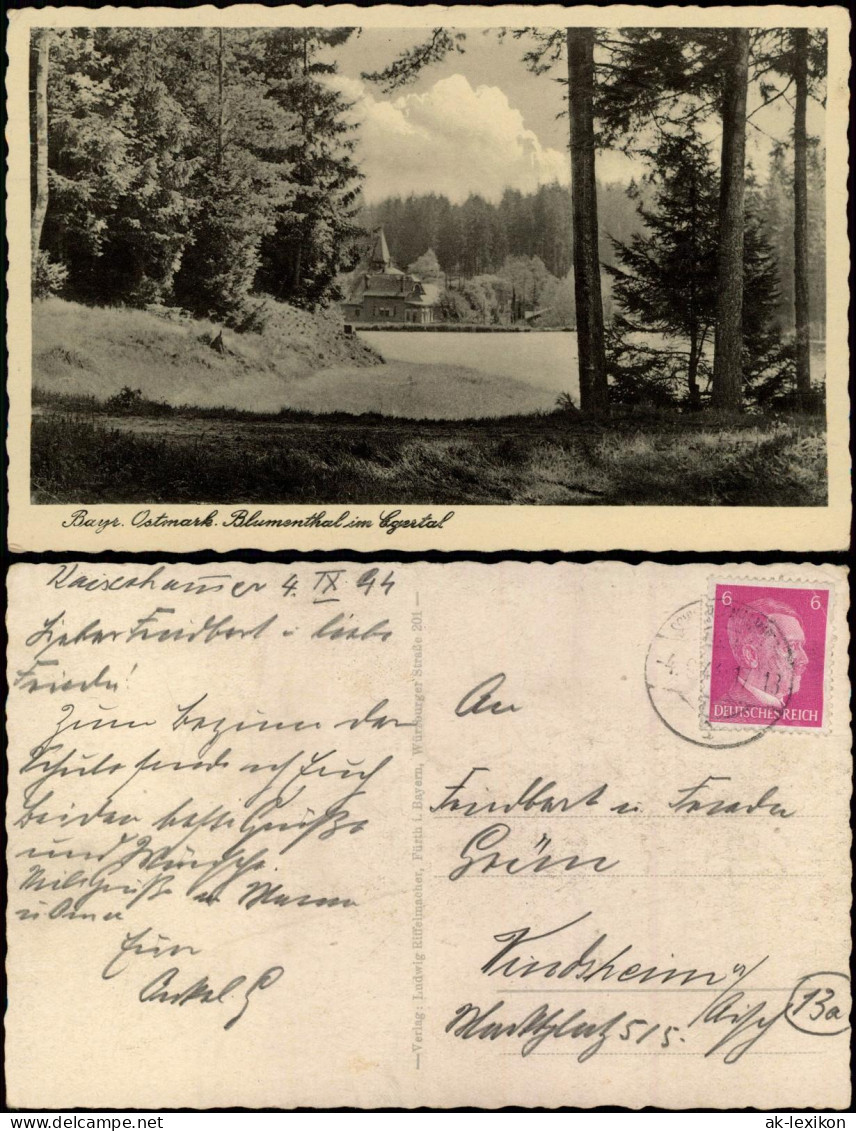 Bayr. Ostmark. Blumenthal im Egertal
Kaiserhammer 4. IX 44
Lieber Friedbert u liebe
Friede!
Zum Beginn der
Schule sende ich Euch
Beiden beste Grüße
und Wünsche.
Viele Grüße an Mama
u Oma
Euer
Onkel G
—Verlag: Ludwig Riffelmacher, Fürth i. Bayern, Würzburger Straße 201—
6 6
DEUTSCHES REICH
An
Friedbert u Frieda
Grün
Windsheim a/
Aisch
13a
Marktplatz 515.
ak-lexikon